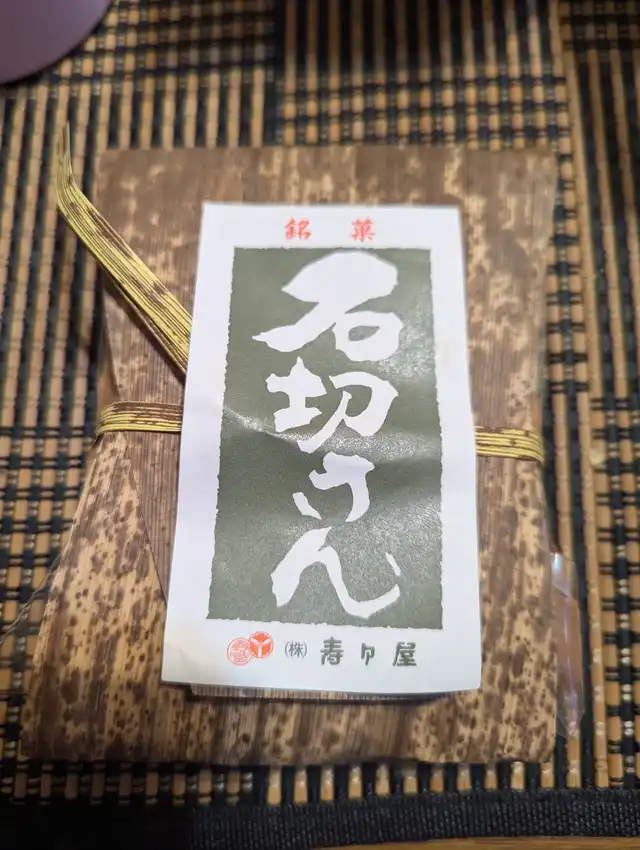 銘菓
石切さん
(株) 寿々屋